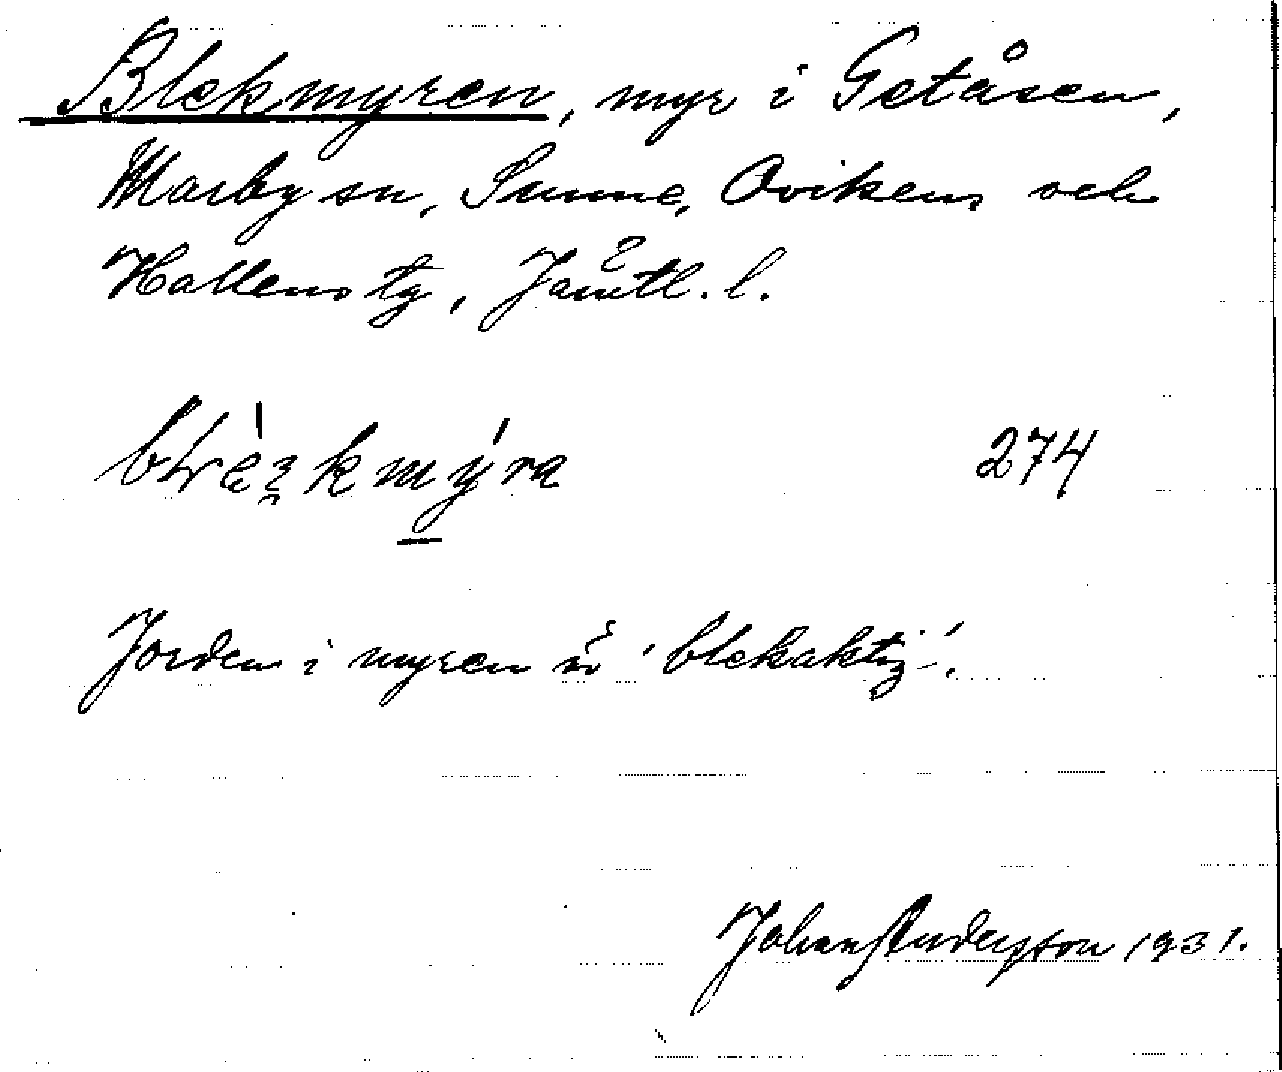 Blekmyren, myr i Getåsen,
Marby sn, Sunne, Ovikens och
Hallens tg, Jämtl. l.
274
Jorden i myren är 'blekaktig'.
Johan Andersson 1931.